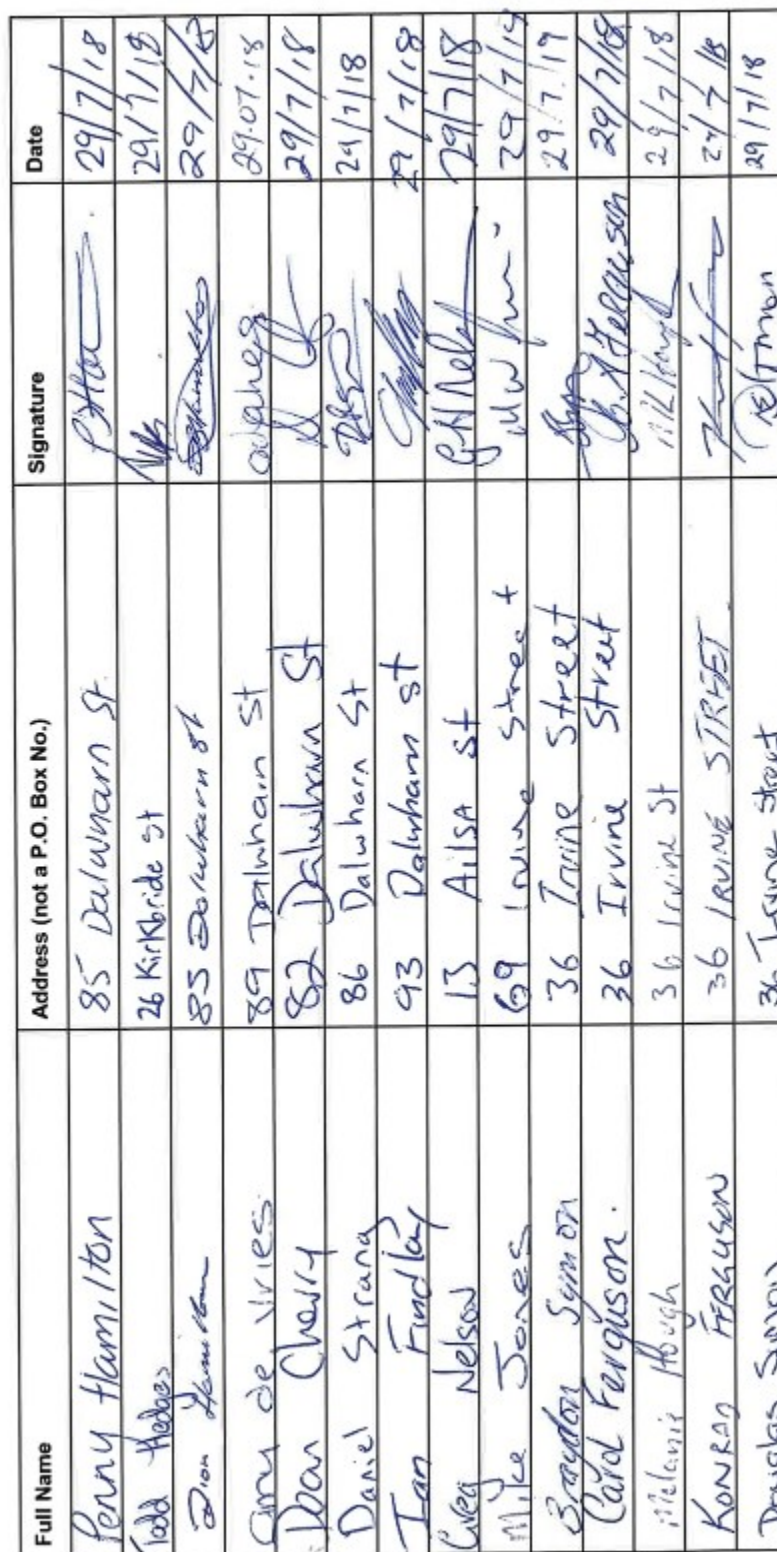 Full Name Address (not a P.O. Box No.) Signature Date
Penny Hamilton 85 Dalwharn St. 29/7/18
Todd Hedges 26 Kirkbride St 29/7/18
Dion Hamilton 85 Dalwharn St 29/7/18
Amy de Vries 89 Dalwharn St 29.07.18
Joan Cherry 82 Dalwharn St 29/7/18
Daniel Strang 86 Dalwharn St 29/7/18
Ian Findlay 93 Dalwharn St 29/7/18
Greg Nelson 13 Ailsa St G.H Nel 29/7/18
Mike Jones 69 Irvine Street 29/7/19
Braydon Symon 36 Irvine Street 29.7.19
Carol Ferguson. 36 Irvine Street Ferguson 29/7/18
Melanie Hough 36 Irvine St 29/7/18
KONRAD FERGUSON 36 IRVINE STREET. 29/7/18
Douglas Symon 36 Irvine Street 29/7/18